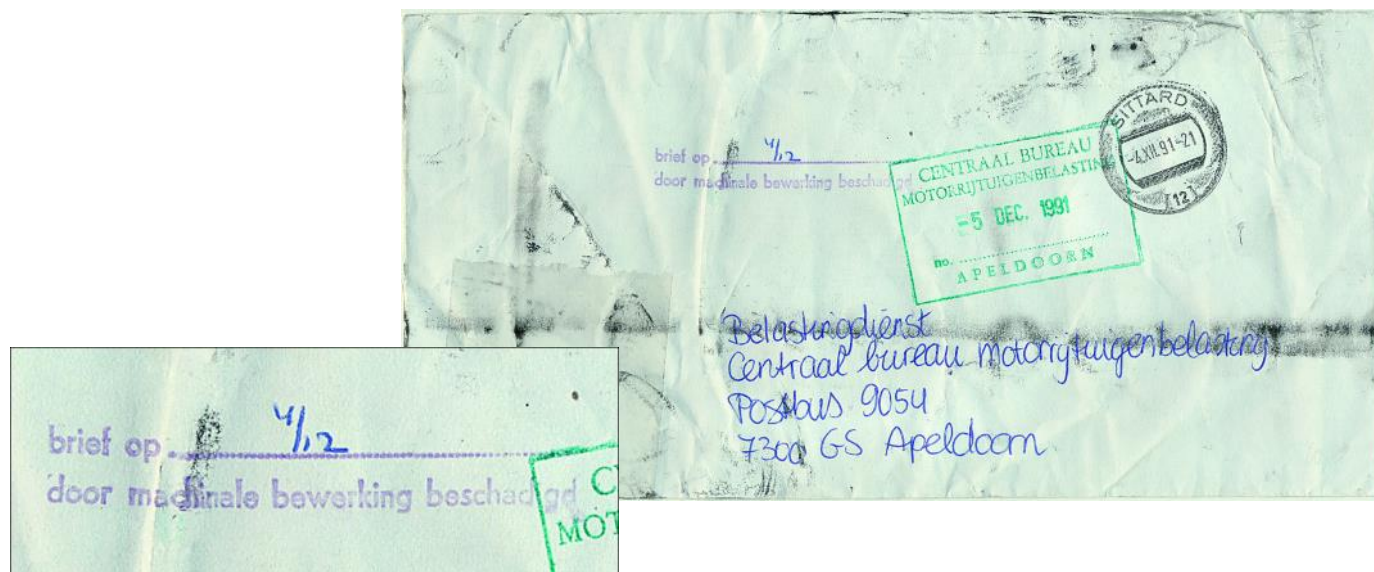 brief op 4/12
door machinale bewerking beschadigd
CENTRAAL BUREAU
MOTORRIJTUIGENBELASTING
-5 DEC. 1991
no.
APELDOORN
SITTARD
-4.XII.91-21
12
Belastingdienst
Centraal bureau motorrijtuigenbelasting
Postbus 9054
7300 GS Apeldoorn
brief op 4/12
door machinale bewerking beschadigd
C
MOT